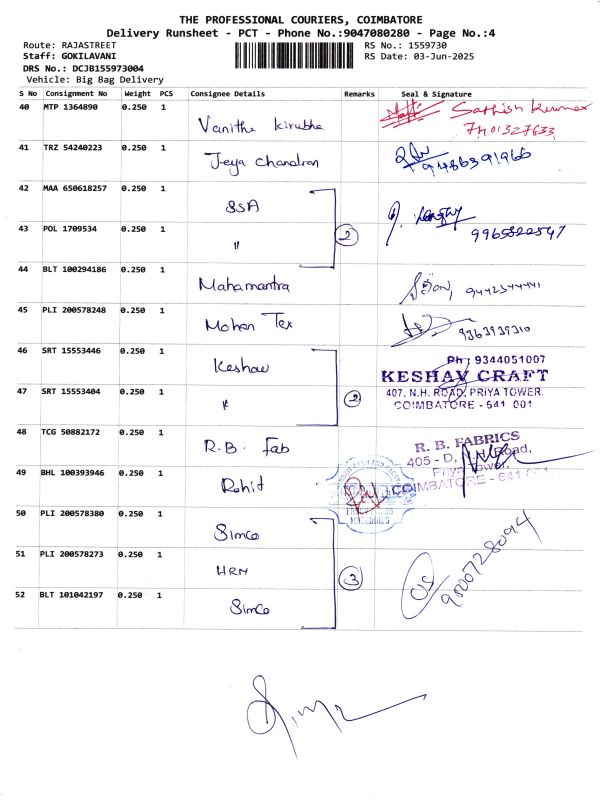 THE PROFESSIONAL COURIERS, COIMBATORE
Delivery Runsheet - PCT - Phone No.:9047080280 - Page No.:4
Route: RAJASTREET
RS No.: 1559730
Staff: GOKILAVANI
RS Date: 03-Jun-2025
DRS No.: DCJB155973004
Vehicle: Big Bag Delivery
S No Consignment No Weight PCS Consignee Details Remarks Seal & Signature
40 MTP 1364890 0.250 1 Vanitha Kirubha Sathish Kumar
7401327633
41 TRZ 54240223 0.250 1 Jeya Chandran 9486391966
42 MAA 650618257 0.250 1 SSA
43 POL 1709534 0.250 1 " 2 9965822547
44 BLT 100294186 0.250 1 Mahamantra 9442344441
45 PLI 200578248 0.250 1 Mohan Tex 9363939310
46 SRT 15553446 0.250 1 Keshav Ph : 9344051007
KESHAV CRAFT
47 SRT 15553404 0.250 1 " 2 407, N.H. ROAD, PRIYA TOWER.
COIMBATORE - 641 001
48 TCG 50882172 0.250 1 R.B. Fab R. B. FABRICS
405 - D, N.H. Road,
Priya Tower,
49 BHL 100393946 0.250 1 Rohit COIMBATORE - 641 001
50 PLI 200578380 0.250 1 Simco
51 PLI 200578273 0.250 1 HRM 3
52 BLT 101042197 0.250 1 Simco